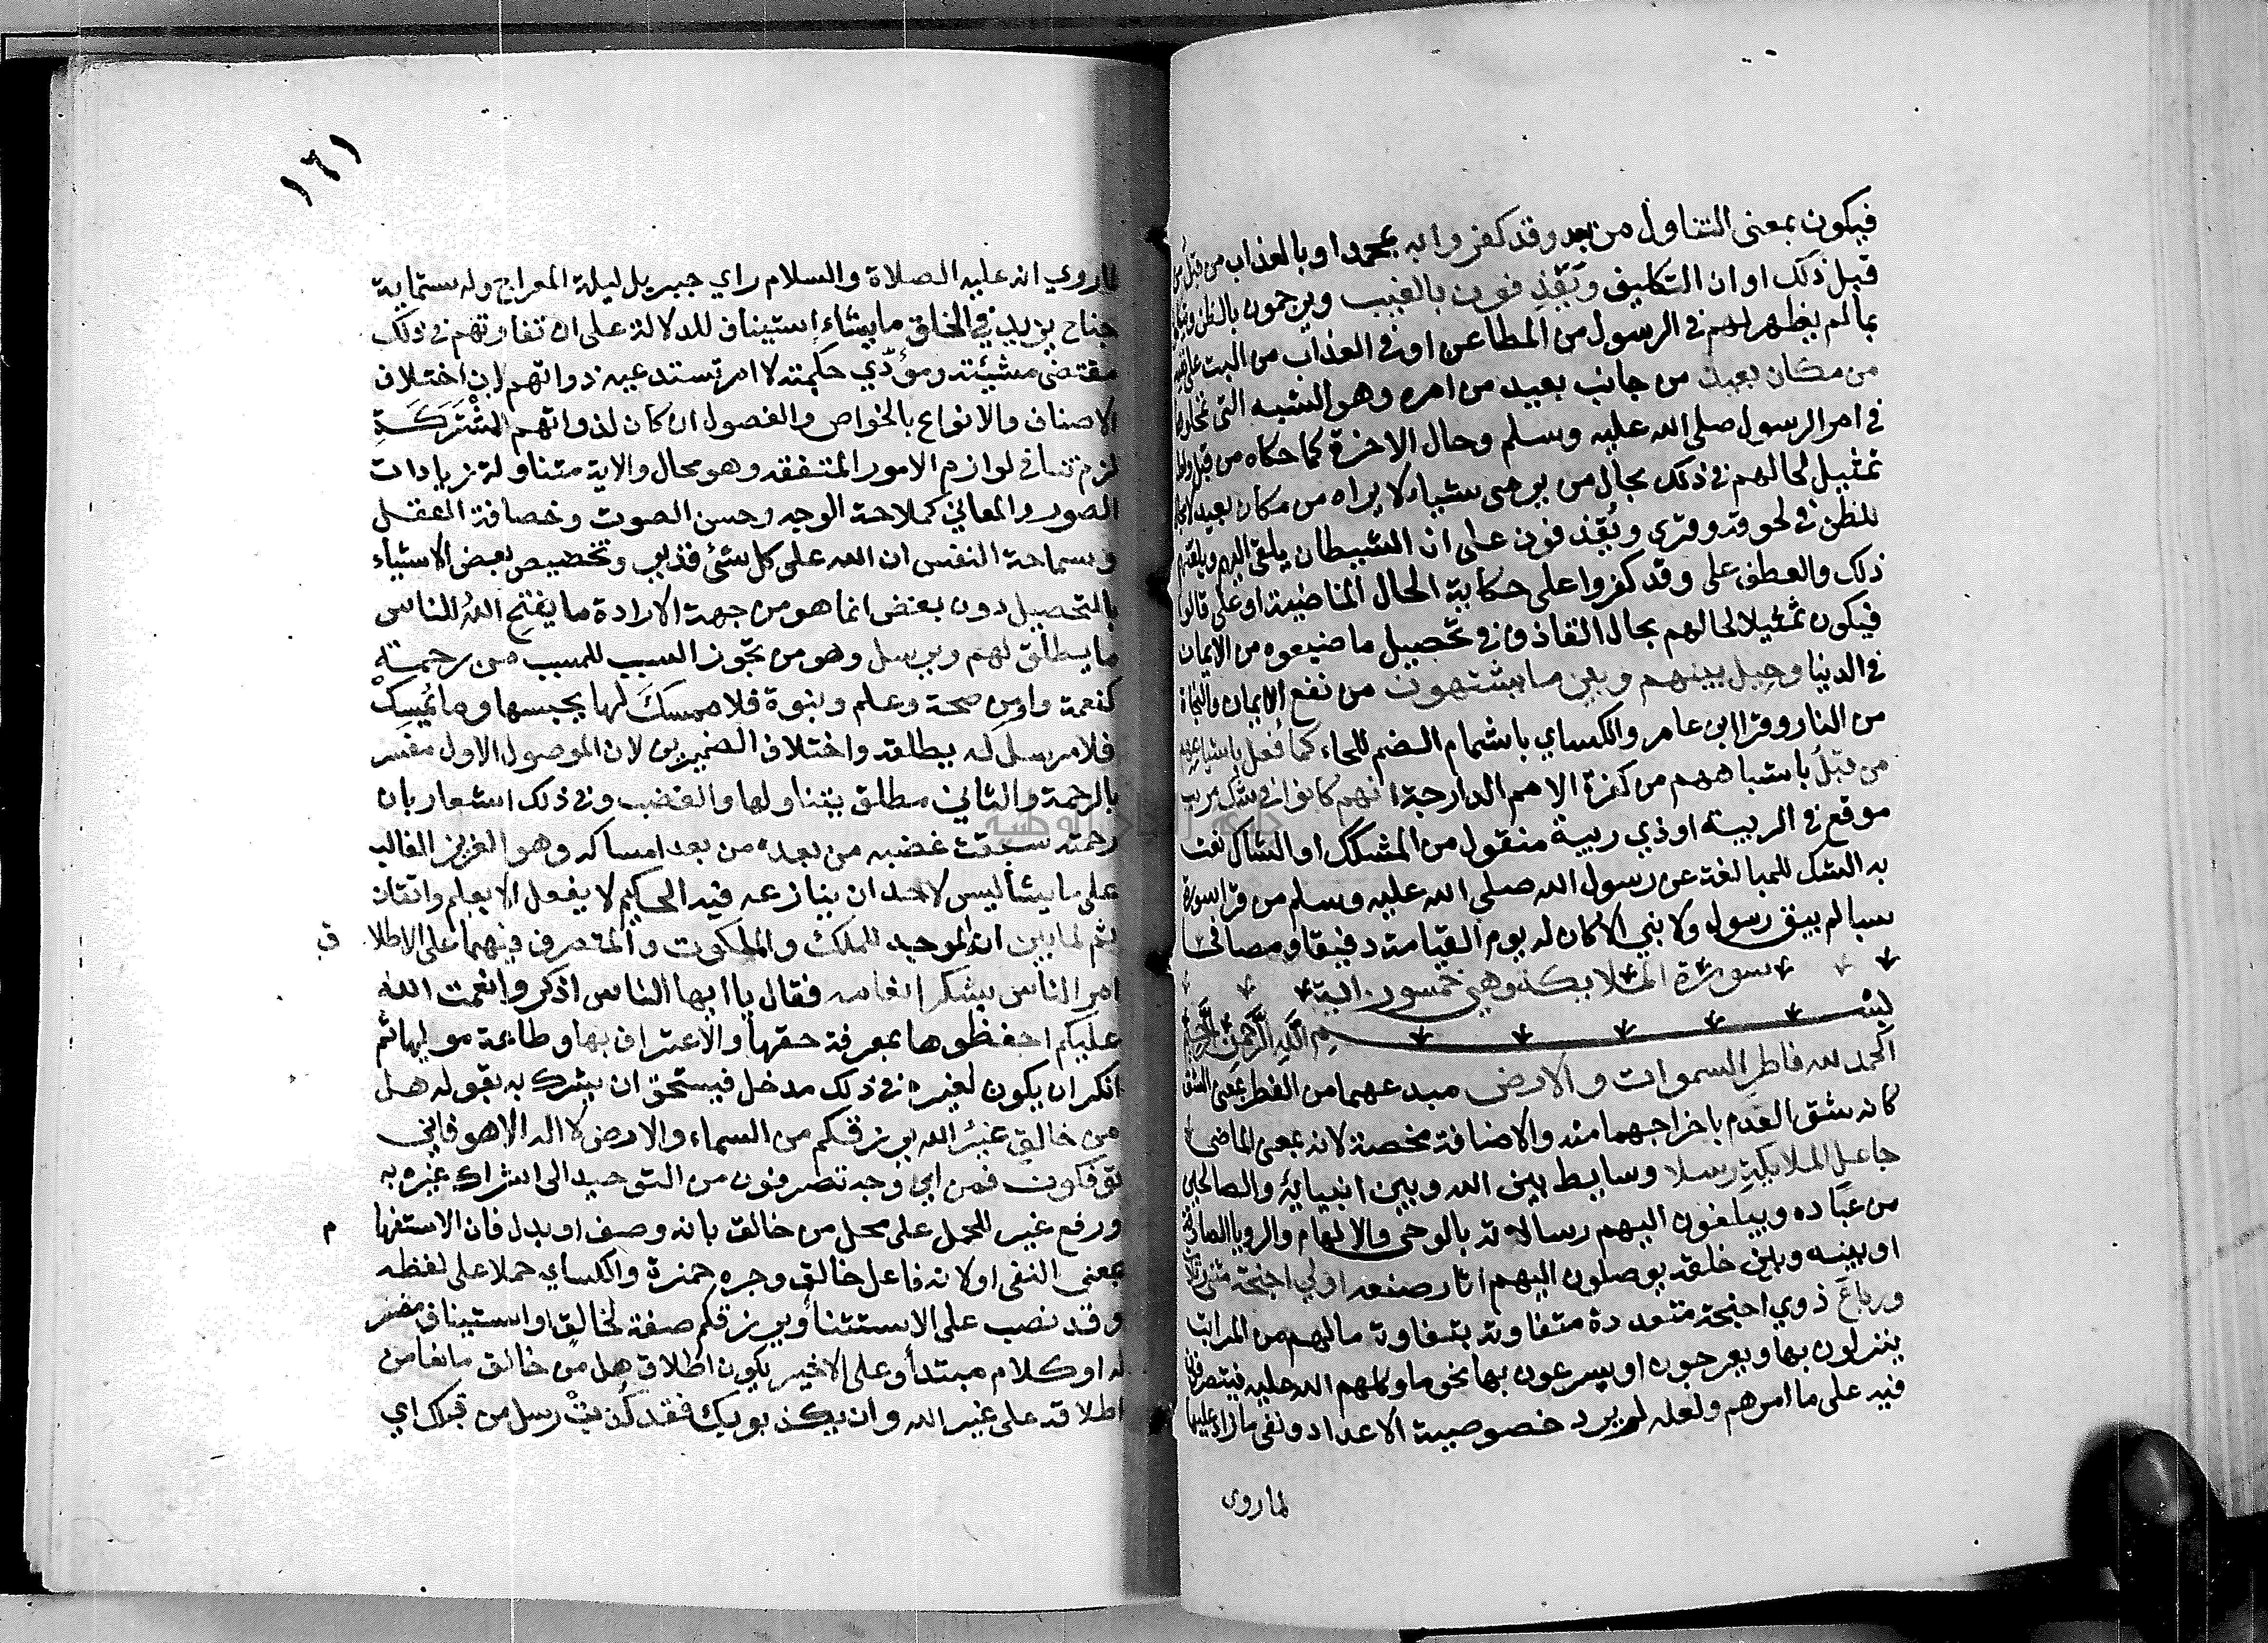 فيكون بمعنى التناول من بعد وقد كفروا به بمحمد او بالعذاب من قبل من
قبل ذلك او ان التكليف ويقذفون بالغيب ويرجمون بالظن
بمالم يظهر لهم في الرسول من المطاعن او في العذاب من البت على نفيه
من مكان بعيد من جانب بعيد من امره وهو الشبه التي تمحلوها
في امر الرسول صلى الله عليه وسلم وحال الاخرة كما حكاه من قبل ولعله
تمثيل لحالهم في ذلك بحال من يرمي شيا لا يراه من مكان بعيد لا مجال
للظن في لحوقه وقرى ويقذفون على ان الشيطان يلقى اليهم ويلقنهم
ذلك والعطف على وقد كفروا على حكاية الحال الماضية او على قالوا
فيكون تمثيلا لحالهم بحال القاذف في تحصيل ما ضيعوه من الايمان
في الدنيا وحيل بينهم وبين ما يشتهون من نفع الايمان والنجاة
من النار وقرا ابن عامر والكساي باشمام الضم للحاء كما فعل باشياعهم
من قبل باشباههم من كفرة الامم الدارجة انهم كانوا في شك مريب
موقع في الريبة او ذي ريبة منقول من المشكك او الشاك نعت
به الشك للمبالغة عن رسول الله صلى الله عليه وسلم من قرا سورة
سبا لم يبق رسول ولا نبي الا كان له يوم القيامة رفيقا ومصافحا
سورة الملايكة وهي خمسون اية
بسم الله الرحمن الرحيم
الحمد لله فاطر السموات والارض مبدعهما من الفطر بمعنى الشق
كانه شق العدم باخراجهما منه والاضافة محضة لانه بمعنى الماضي
جاعل الملايكة رسلا وسايط بين الله وبين انبيائه والصالحين
من عباده ويبلغون اليهم رسالاته بالوحي والالهام والرويا الصادقة
او بينه وبين خلقه يوصلون اليهم اثار صنعه اولي اجنحة مثنى وثلاث
ورباع ذوي اجنحة متعددة متفاوتة بتفاوت مالهم من المراتب
ينزلون بها ويعرجون او يسرعون بها نحو ما وكلهم الله عليه فيتصرفون
فيه على ما امرهم ولعله لم يرد خصوصية الاعداد ونفي ما زاد عليها
لما روي
١٦١
لما روي انه عليه الصلاة والسلام راي جبريل ليلة المعراج وله ستماية
جناح يزيد في الخلق ما يشاء استيناف للدلالة على ان تفاوتهم في ذلك
مقتضى مشيئته ومؤدي حكمته لا امر تستدعيه ذواتهم لان اختلاف
الاصناف والانواع بالخواص والفصول ان كان لذواتهم المشتركة
لزم تنافي لوازم الامور المتفقه وهو محال والاية متناولة زيادات
الصور والمعاني كملاحة الوجه وحسن الصوت وخصافة العقل
وسماحة النفس ان الله على كل شئ قدير وتخصيص بعض الاشياء
بالتحصيل دون بعض انما هو من جهة الارادة ما يفتح الله للناس
ما يطلق لهم ويرسل وهو من تجوز السبب للمسبب من رحمة
كنعمة وامن صحة وعلم ونبوة فلا ممسك لها يحبسها وما يمسك
فلا مرسل له يطلقه واختلاف الضميرين لان الموصول الاول مفسر
بالرحمة والثاني مطلق يتناولها والغضب وفي ذلك اشعار بان
رحمته سبقت غضبه من بعده من بعد امساكه وهو العزيز الغالب
على ما يشا ليس لاحد ان ينازعه فيه الحكيم لا يفعل الا بعلم واتقان
ثم لما بين انه الموجد للملك والملكوت والمتصرف فيهما على الاطلا ق
امر الناس بشكر انعامه فقال يا ايها الناس اذكروا نعمت الله
عليكم احفظوها بمعرفة حقها والاعتراف بها وطاعة موليها ثم
انكر ان يكون لغيره في ذلك مدخل فيستحق ان يشرك به بقوله هل
من خالق غير الله يرزقكم من السماء والارض لا اله الا هو فاني
توفكون فمن اي وجه تصرفون من التوحيد الى اشراك غيره به
ورفع غير للحمل على محل من خالق بانه وصف او بدل فان الاستفها م
بمعنى النفي او لانه فاعل خالق وجره حمزة والكساي حملا على لفظه
وقد نصب على الاستثنا ويرزقكم صفة لخالق او استيناف مفسر
له او كلام مبتدأ وعلى الاخير يكون اطلاق هل من خالق مانعا من
اطلاقه على غير الله وان يكذبوك فقد كذبت رسل من قبلك اي